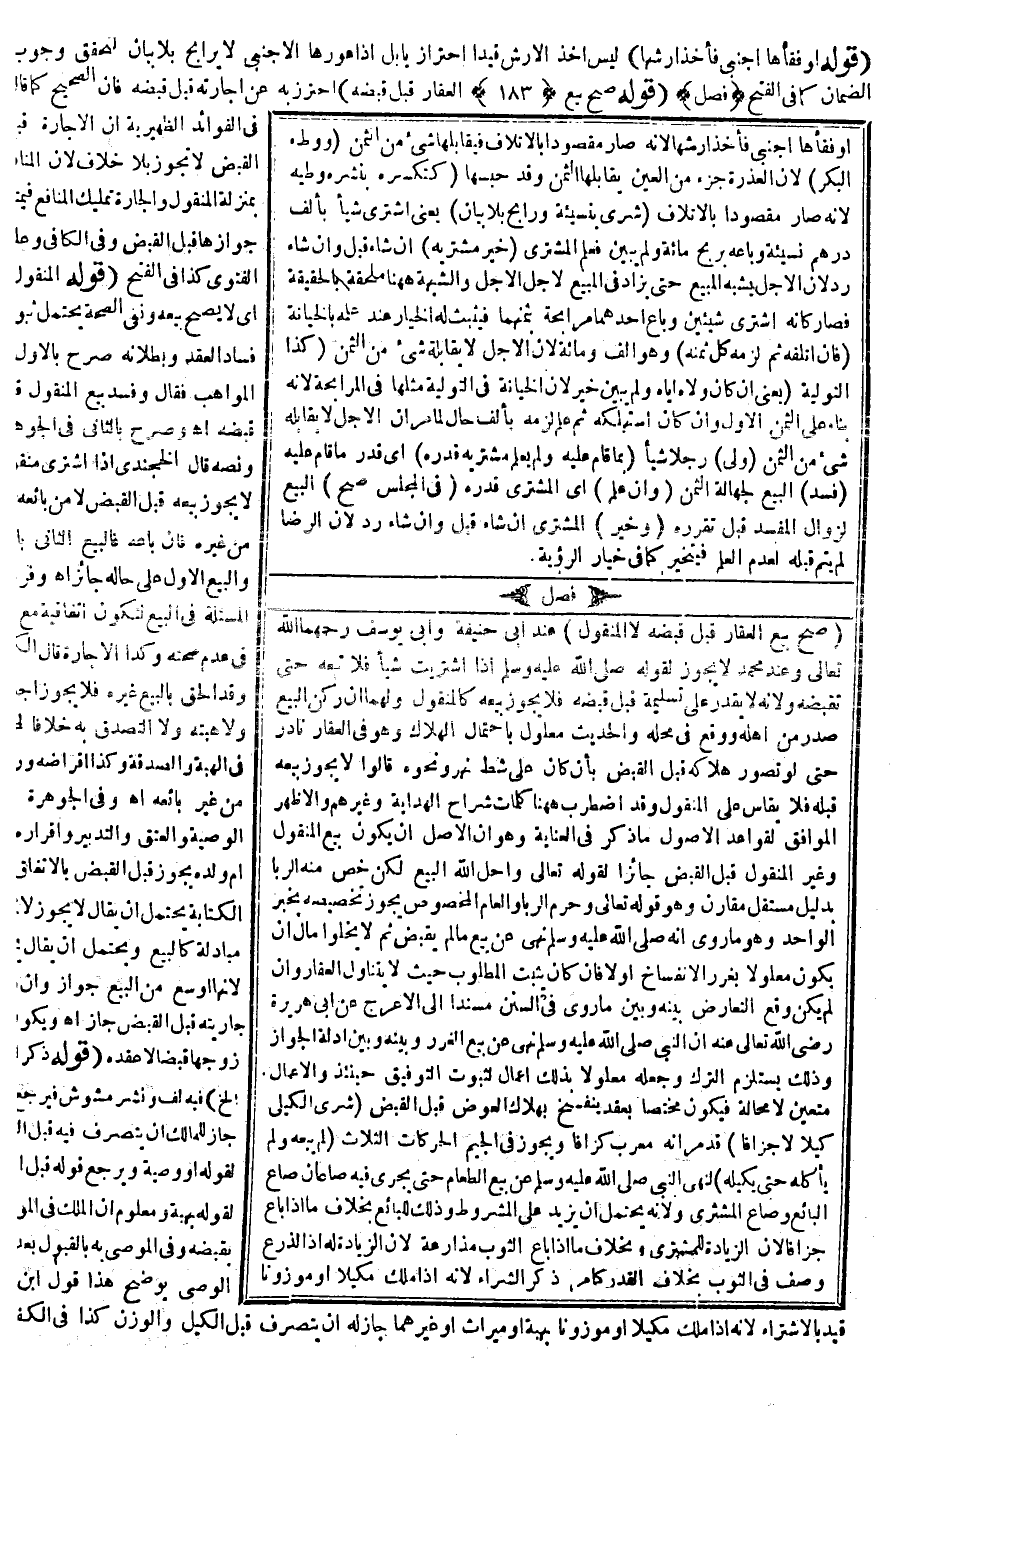 (قوله اوفقأها اجنبى فأخذ ارشها) ليس اخذ الارش قيدا احتراز يابل اذاعورها الاجنبى لايرابح بلابيان لتحقق وجوب
الضمان كما فى الفتح ﴿فصل﴾ (قوله صح بيع ﴿ ١٨٣ ﴾ العقار قبل قبضه) احترز به عن اجارته قبل قبضه فان الصحيح كما قال
اوفقأها اجنبى فأخذ ارشها لانه صار مقصودا بالاتلاف فيقابلها شىء من الثمن (ووطء
البكر) لان العذرة جزء من العين يقابلها الثمن وقد حبسها (كتكسره بنشره وطيه
لانه صار مقصودا بالاتلاف (شرى بنسيئة ورابح بلابيان) يعنى اشترى شيأ بألف
درهم نسيئة وباعه بربح مائة ولم يبين فعلم المشترى (خير مشتريه) ان شاء قبل وان شاء
رد لان الاجل يشبه المبيع حتى يزاد فى المبيع لاجل الاجل والشبهة ههنا ملحقة بالحقيقة
فصار كانه اشترى شيئين وباع احدهما مرابحة بثمنهما فيثبت له الخيار عند علمه بالخيانة
(فان اتلفه ثم لزمه كل ثمنه) وهو الف ومائة لان الاجل لا يقابله شىء من الثمن (كذا
التولية (يعنى ان كان ولاه اياه ولم يبين خير لان الخيانة فى التولية مثلها فى المرابحة لانه
بناء على الثمن الاول وان كان استهلكه ثم علم لزمه بألف حال لمامر ان الاجل لا يقابله
شىء من الثمن (ولى) رجلا شيأ (بما قام عليه ولم يعلم مشتريه قدره) اى قدر ماقام عليه
(فسد) البيع لجهالة الثمن (وان علم) اى المشترى قدره (فى المجلس صح) البيع
لزوال المفسد قبل تقرره (وخير) المشترى ان شاء قبل وان شاء رد لان الرضا
لم يتم قبله لعدم العلم فيتخير كما فى خيار الرؤية.
﴿ فصل ﴾
(صح بيع العقار قبل قبضه لا المنقول) عند ابى حنيفة وابى يوسف رحمهما الله
تعالى وعند محمد لايجوز لقوله صلى الله عليه وسلم اذا اشتريت شيأ فلا تبعه حتى
تقبضه ولانه لا يقدر على تسليمة قبل قبضه فلا يجوز بيعه كالمنقول ولهما ان ركن البيع
صدر من اهله ووقع فى محله والحديث معلول باحتمال الهلاك وهو فى العقار نادر
حتى لو تصور هلاكه قبل القبض بأن كان على شط نهر ونحوه قالوا لا يجوز بيعه
قبله فلا يقاس على المنقول وقد اضطرب ههنا كلمات شراح الهداية وغيرهم والاظهر
الموافق لقواعد الاصول ماذكر فى العناية وهو ان الاصل ان يكون بيع المنقول
وغير المنقول قبل القبض جائزا لقوله تعالى واحل الله البيع لكن خص منه الربا
بدليل مستقل مقارن وهو قوله تعالى وحرم الربا والعام المخصوص يجوز تخصيصه بخبر
الواحد وهو ماروى انه صلى الله عليه وسلم نهى عن بيع مالم يقبض ثم لايخلوا ما ان
يكون معلولا بغرر الانفساخ اولا فان كان يثبت المطلوب حيث لا يتناول العقار وان
لم يكن وقع التعارض بينه وبين ماروى فى السنن مسندا الى الاعرج عن ابى هريرة
رضى الله تعالى عنه ان النبى صلى الله عليه وسلم نهى عن بيع الغرر وبينه وبين ادلة الجواز
وذلك يستلزم الترك وجعله معلولا بذلك اعمال لثبوت التوفيق حينئذ والاعمال.
متعين لامحالة فيكون مختصا بعقد ينفسخ بهلاك العوض قبل القبض (شرى الكيلى
كيلا لا جزافا) قدمر انه معرب كزافا ويجوز فى الجيم الحركات الثلاث (لم يبعه ولم
يأكله حتى يكيله) لنهى النبى صلى الله عليه وسلم عن بيع الطعام حتى يجرى فيه صاعان صاع
البائع وصاع المشترى ولانه يحتمل ان يزيد على المشروط وذلك للبائع بخلاف مااذا باع
جزافا لان الزيادة للمشترى وبخلاف مااذا باع الثوب مذارعة لان الزيادة له اذ الذرع
وصف فى الثوب بخلاف القدر كمامر ذكر الشراء لانه اذا ملك مكيلا او موزونا
فى الفوائد الظهيرية ان الاجارة قبل
القبض لاتجوز بلا خلاف لان المنا
بمنزلة المنقول والاجارة تمليك المنافع فيمت
جوازها قبل القبض وفى الكافى وعا
الفتوى كذا فى الفتح (قوله المنقول
اى لايصح بيعه ونفى الصحة يحتمل ثبو
فساد العقد وبطلانه صرح بالاول
المواهب فقال وفسد بيع المنقول ق
قبضه اه وصرح بالثانى فى الجوه
ونصه قال الخجندى اذا اشترى منقو
لايجوز بيعه قبل القبض لا من بائعه
من غيره فان باعه فالبيع الثانى با
والبيع الاول على حاله جائز اه وفر
المسئلة فى البيع لتكون اتفاقية مع
فى عدم صحته وكذا الاجارة قال الك
وقد الحق بالبيع غيره فلا يجوز اجا
ولاهبته ولا التصدق به خلافا لم
فى الهبة والصدقة وكذا اقراضه ور
من غير بائعه اه وفى الجوهرة
الوصية والعتق والتدبير واقراره
ام ولده يجوز قبل القبض بالاتفاق
الكتابة يحتمل ان يقال لايجوز لا
مبادلة كالبيع ويحتمل ان يقال ي
لانها اوسع من البيع جواز وان
جاريته قبل القبض جاز اه ويكو
زوجها قبضا لا عقده (قوله ذكر ا
الخ) فيه لف ونشر مشوش فيرجع
جاز للمالك ان يتصرف فيه قبل ال
لقوله او وصية ويرجع قوله قبل ا
لقوله بهبة ومعلوم ان الملك فى المو
بقبضه وفى الموصى به بالقبول بعد
الوصى يوضح هذا قول ابن
قيد بالاشتراء لانه اذا ملك مكيلا او موزونا بهبة او ميراث او غيرهما جازله ان يتصرف قبل الكيل والوزن كذا فى الكف